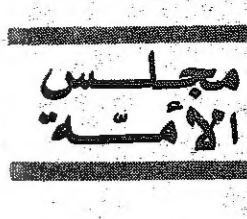 مجلس
الأمّة